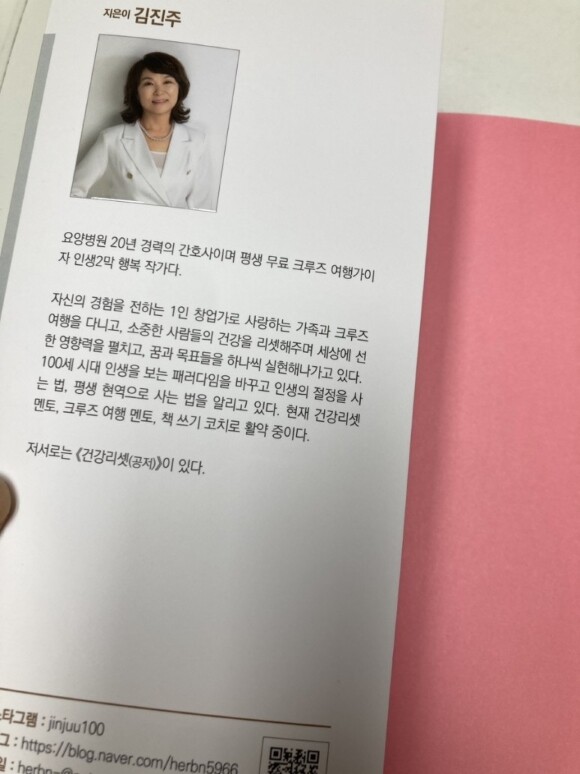 지은이 김진주
요양병원 20년 경력의 간호사이며 평생 무료 크루즈 여행가이
자 인생2막 행복 작가다.
자신의 경험을 전하는 1인 창업가로 사랑하는 가족과 크루즈
여행을 다니고, 소중한 사람들의 건강을 리셋해주며 세상에 선
한 영향력을 펼치고, 꿈과 목표들을 하나씩 실현해나가고 있다.
100세 시대 인생을 보는 패러다임을 바꾸고 인생의 절정을 사
는 법, 평생 현역으로 사는 법을 알리고 있다. 현재 건강리셋
멘토, 크루즈 여행 멘토, 책 쓰기 코치로 활약 중이다.
저서로는 《건강리셋(공저)》이 있다.
스타그램 : jinjuu100
그 : https://blog.naver.com/herbn5966
일 :